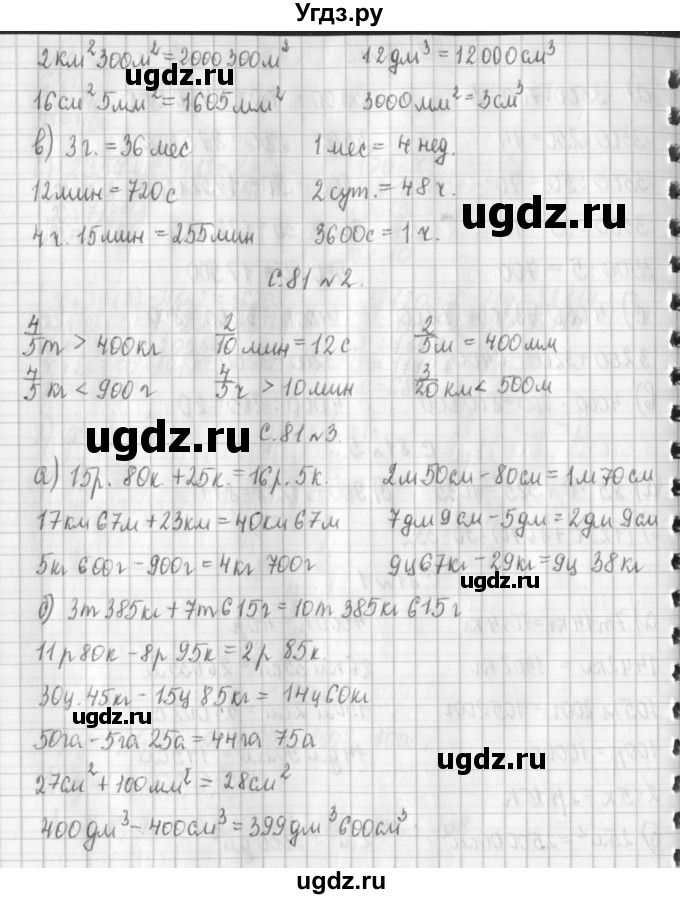 Угдз.ру
2км² 300м² = 2000300м² 12дм³ = 12000см³
ugdz.ru
16см² 5мм² = 1605мм² 3000мм² = 3см³
в) 3г. = 36мес 1мес = 4 нед.
12мин = 720с 2сут. = 48ч.
ugdz.ru
4ч. 15мин = 255мин 3600с = 1ч.
С.81 №2.
4/5т > 400кг 2/10мин = 12с 2/5м = 400мм
4/5кг < 900г 4/5ч > 10мин 3/20км < 500м
ugdz.ru
С.81 №3.
а) 15р. 80к + 25к. = 16р. 5к. 2м50см - 80см = 1м70см
17км67м + 23км = 40км67м 7дм9см - 5дм = 2дм9см
5кг600г - 900г = 4кг 700г 9ц67кг - 29кг = 9ц 38кг
ugdz.ru
б) 3т385кг + 7т615г = 10т385кг615г
11р80к - 8р95к = 2р 85к.
30ц.45кг - 15ц85кг = 14ц60кг
ugdz.ru
50га - 5га25а = 44га 75а
27см² + 100мм² = 28см²
400дм³ - 400см³ = 399дм³600см³
ugdz.ru
ugdz.ru